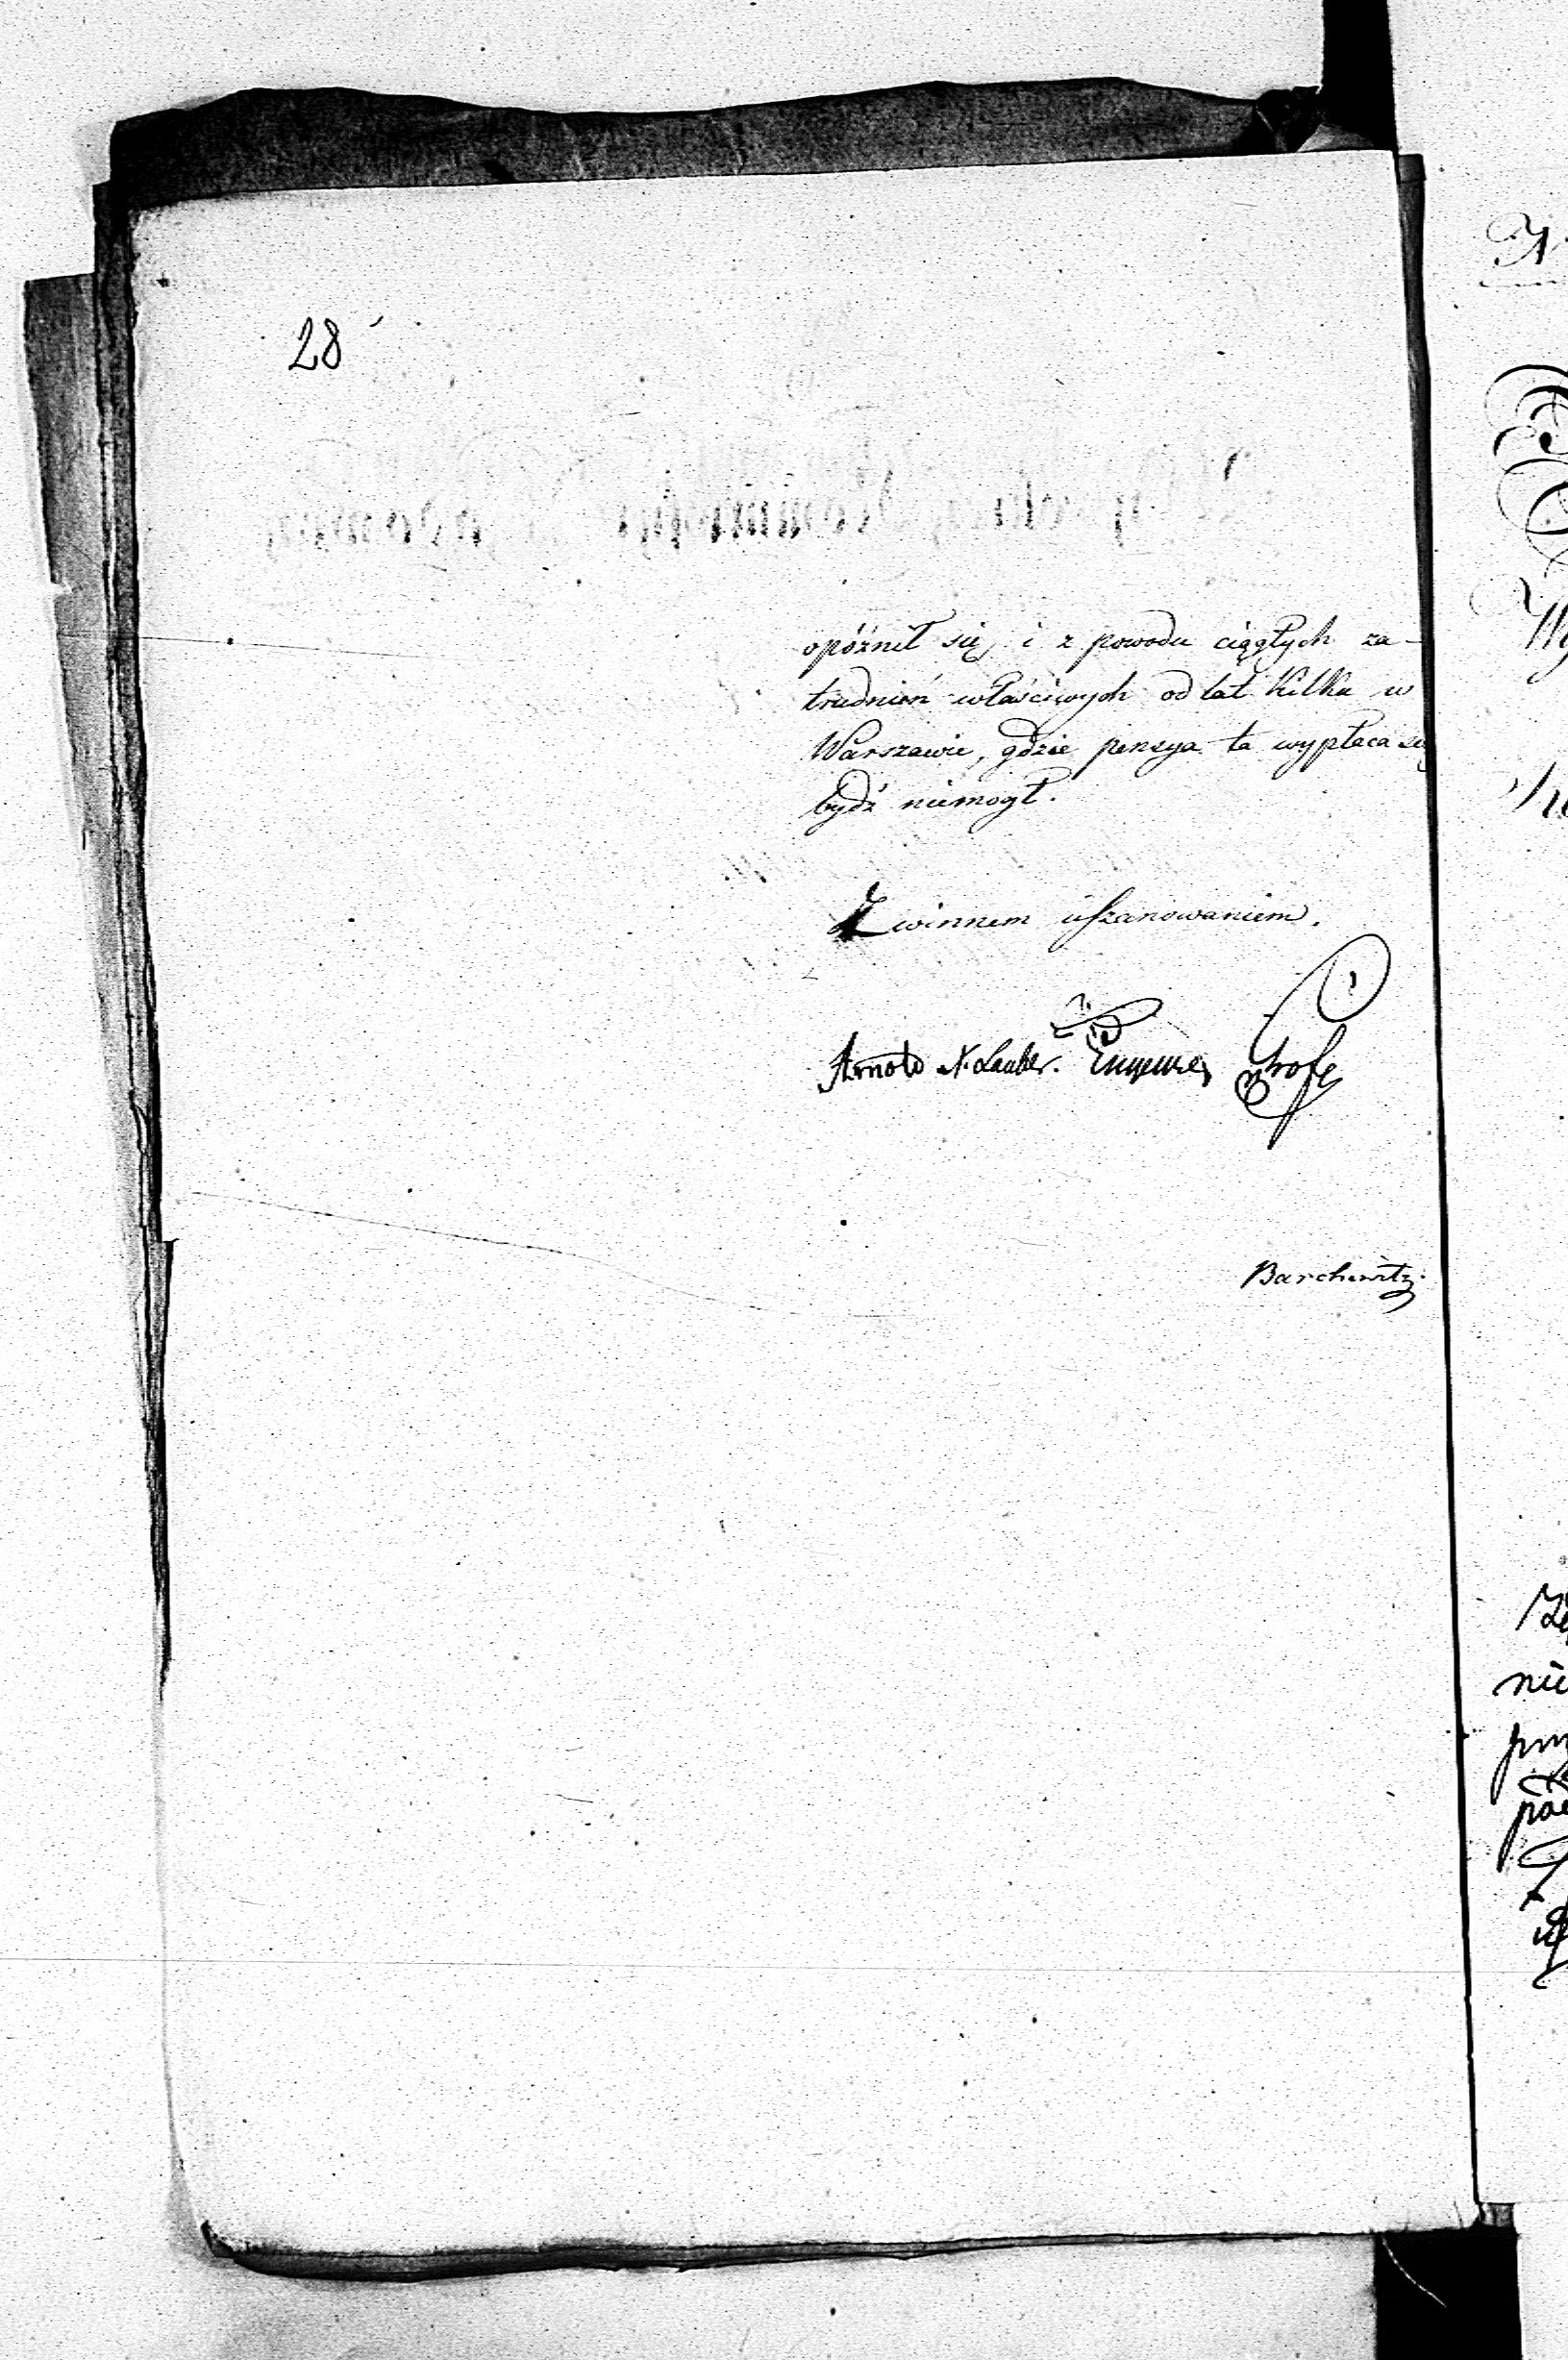 28
opóźnił się, i z powodu ciągłych za-
trudnień właściwych od lat kilku w
Warszawie, gdzie pensya ta wypłaca się
bydź niemogł.
Z winnem uszanowaniem.
Arnold
Barchewitz.